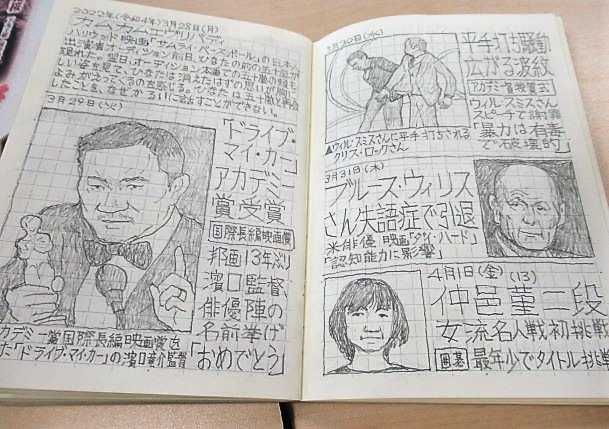 2022年(令和4年)3月28日(月)
カムカムエヴリバディ
ハリウッド映画「サムライ・ベースボール」の日本人
出演者オーディション前日、ひなたの前に五十嵐が
現れた。翌日、オーディション本番での五十嵐の頼も
しい姿を見て、ひなたは消したはずの思いが胸に
よみがえってくるのを感じる。ひなたは五十嵐と再会
したことを、なぜかるいに話すことができない。
3月29日(火)
「ドライブ・
マイ・カー」
アカデミー
賞受賞
国際長編映画賞
邦画13年ぶり
濱口監督、
俳優陣の
名前挙げ
「おめでとう」
カデミー賞国際長編映画賞を
た「ドライブ・マイ・カー」の濱口竜介監督
3月30日(水)
平手打ち騒動
広がる波紋
アカデミー賞授賞式
ウィル・スミスさん
スピーチで謝罪
「暴力は有毒
で破壊的」
▲ウィル・スミスさんに平手打ちされる
クリス・ロックさん
3月31日(木)
ブルース・ウィリス
さん失語症で引退
米俳優 映画「ダイ・ハード」
「認知能力に影響」
4月1日(金) (13)
仲邑菫二段
女流名人戦初挑戦
囲碁 最年少でタイトル挑戦